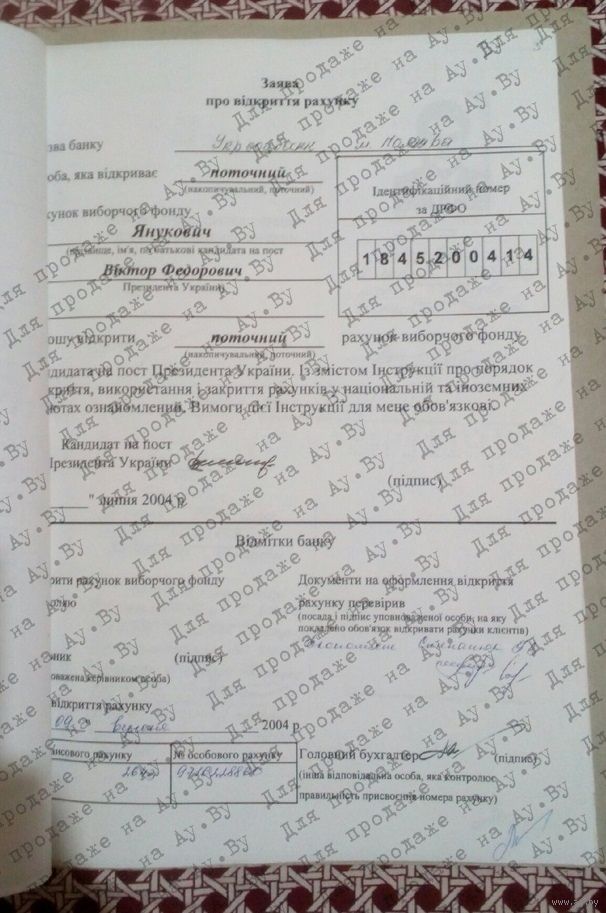 Заява
про відкриття рахунку
зва банку м. Полтава
оба, яка відкриває поточний
(накопичувальний, поточний)
Ідентифікаційний номер
за ДРФО
1845200414
хунок виборчого фонду
Янукович
(прізвище, ім'я, по батькові кандидата на пост
Віктор Федорович
Президента України)
ошу відкрити поточний рахунок виборчого фонду
(накопичувальний, поточний)
ндидата на пост Президента України. Із змістом Інструкції про порядок
криття, використання і закриття рахунків у національній та іноземних
лютах ознайомлений. Вимоги цієї Інструкції для мене обов'язкові.
Кандидат на пост
Президента України
(підпис)
" липня 2004 р
Відмітки банку
рити рахунок виборчого фонду
олю
Документи на оформлення відкриття
рахунку перевірив
(посада і підпис уповноваженої особи, на яку
покладено обов'язок відкривати рахунки клієнтів)
ник (підпис)
оважена керівником особа)
відкриття рахунку
09 " вересня 2004 р.
нсового рахунку № особового рахунку
Головний бухгалтер (підпис)
(інша відповідальна особа, яка контролює
правильність присвоєння номера рахунку)
Для продаже на Ау.Ву
www.ay.by